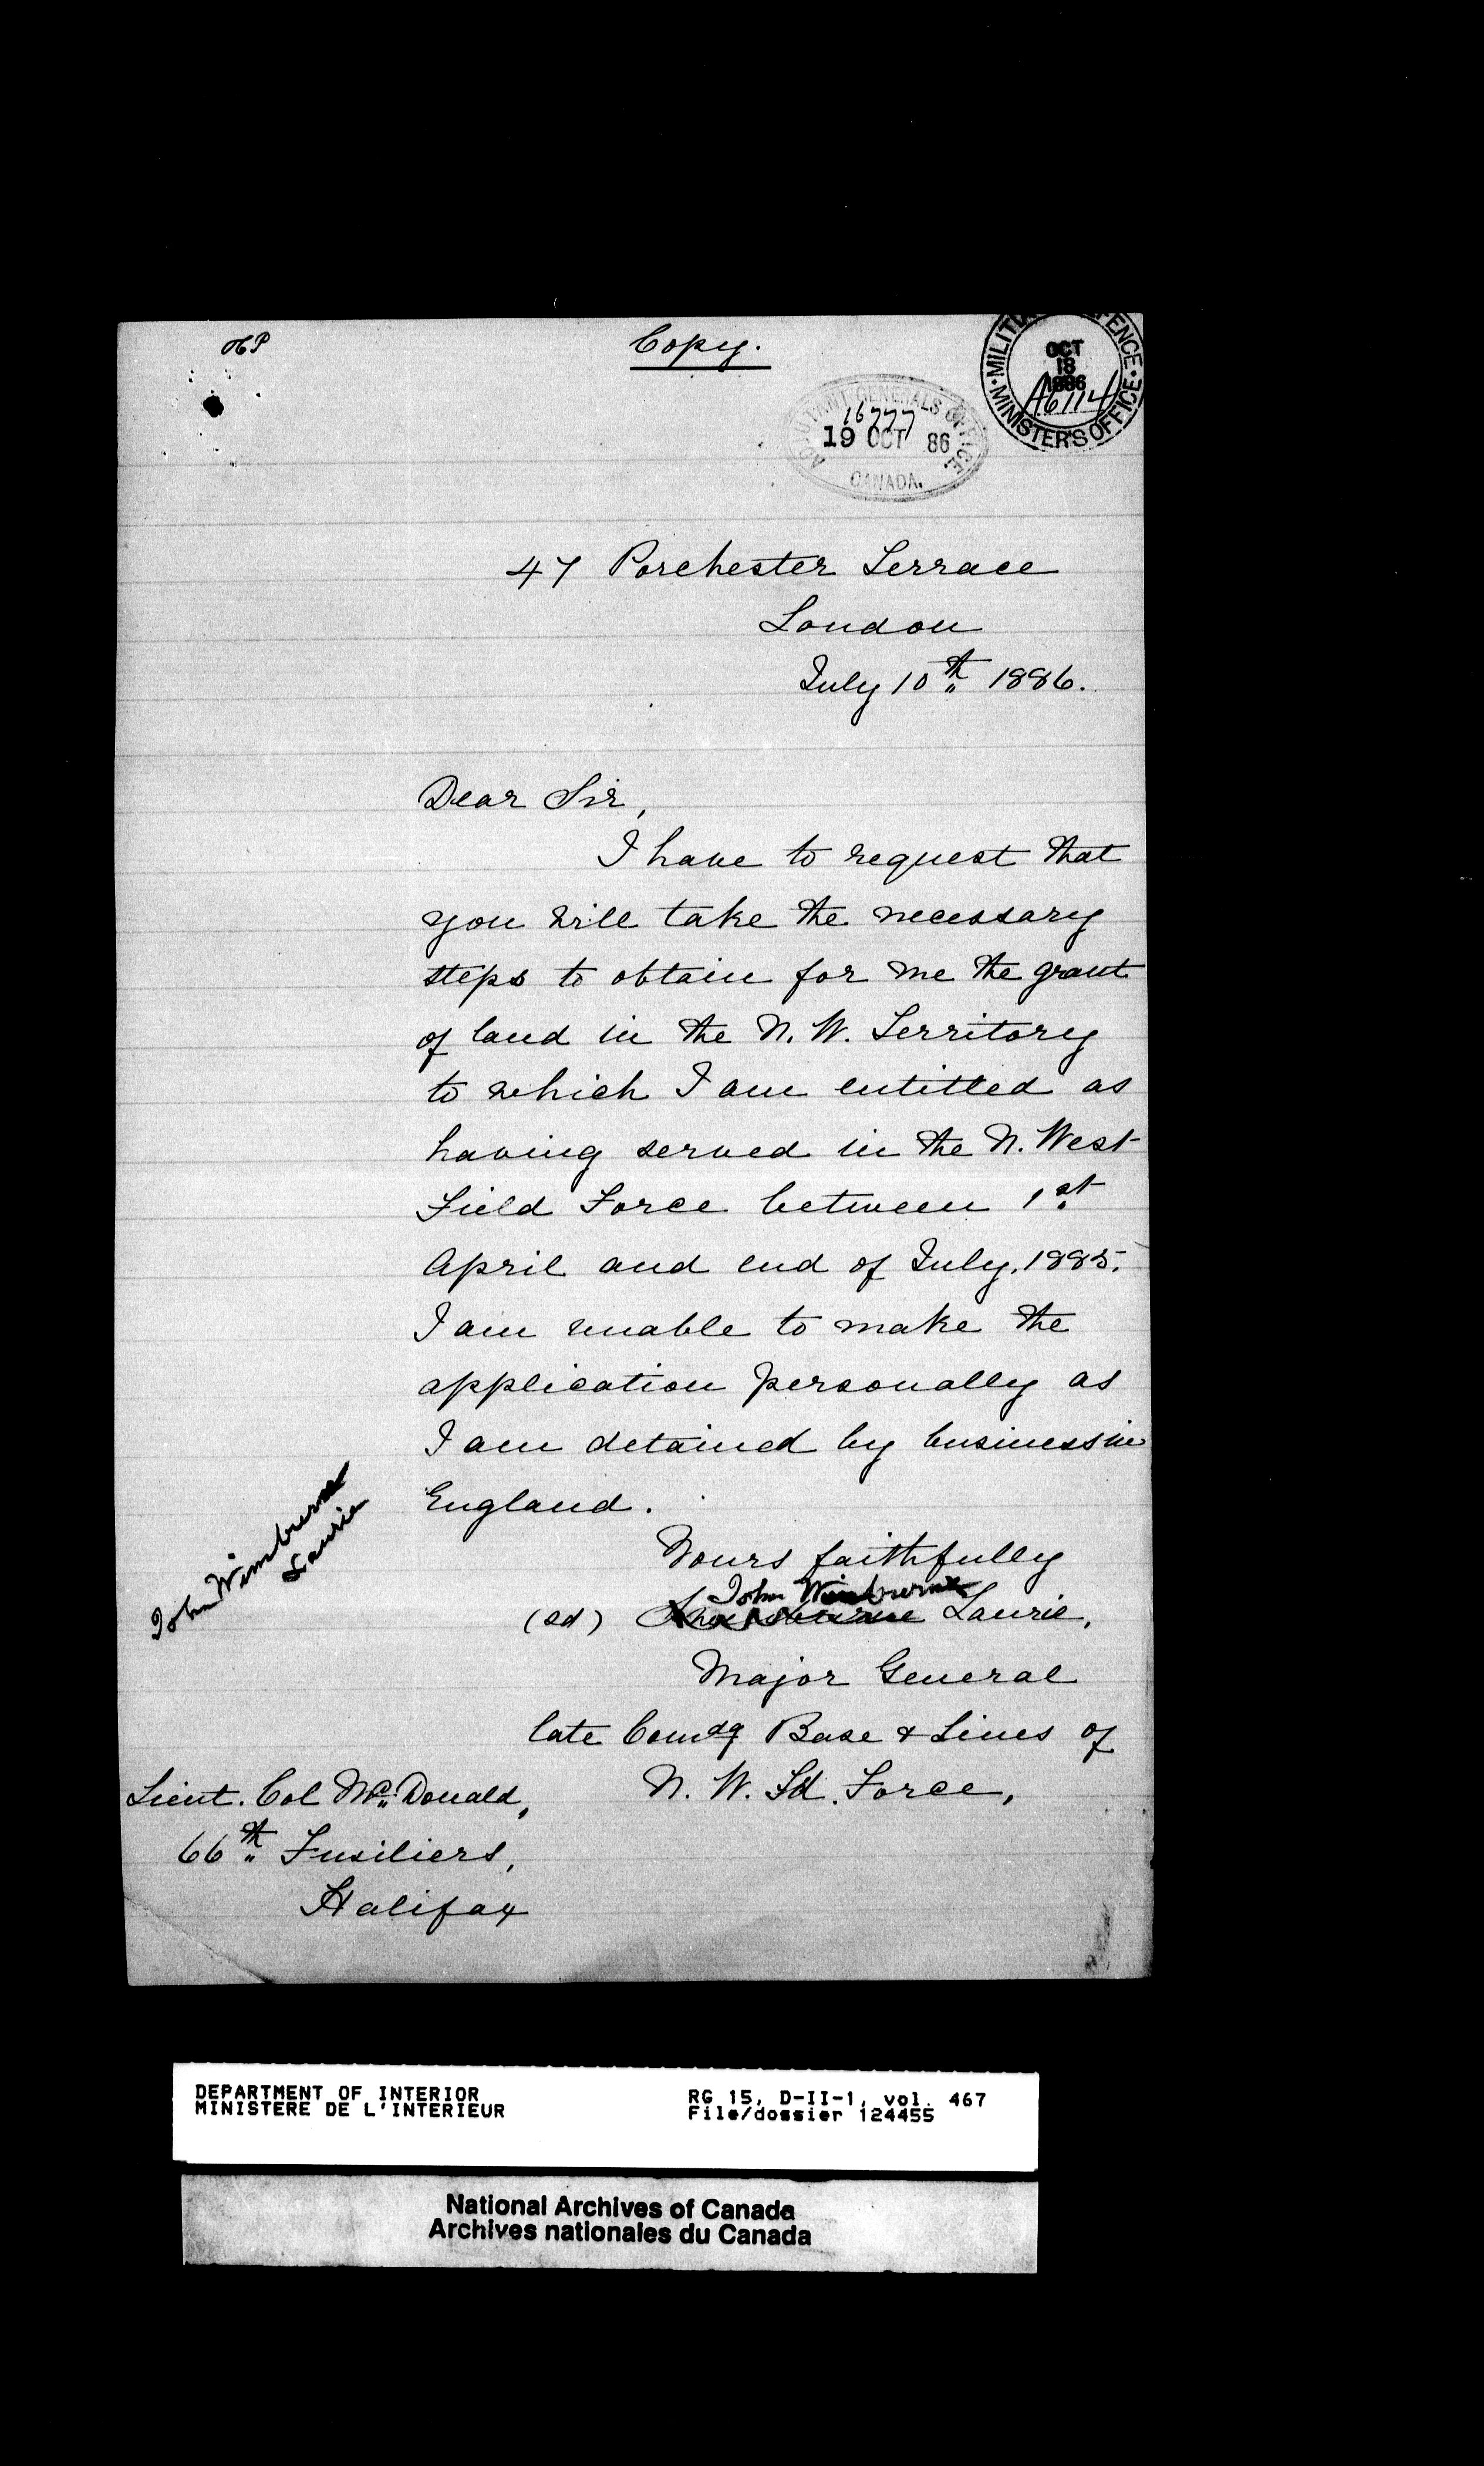 Copy.
MILITIA DEFENCE
OCT
18
1886
A6114
MINISTER'S OFFICE
ADJUTANT GENERALS OFFICE
16777
19 OCT 86
CANADA.
47 Porchester Terrace
London
July 10th 1886.
Dear Sir,
I have to request that
you will take the necessary
steps to obtain for me the grant
of land in the N. W. Territory
to which I am entitled as
having served in the N. West
Field Force between 1st
April and end of July, 1885.
I am unable to make the
application personally as
I am detained by business in
England.
Yours faithfully
John Wimburne
(sd) Laurie,
Major General
late Comdg Base & Lines of
N. W. Fd. Force,
John Wimburne
Laurie
Lieut. Col Mc Donald,
66th Fusiliers,
Halifax
DEPARTMENT OF INTERIOR
MINISTERE DE L'INTERIEUR
RG 15, D-II-1, vol. 467
File/dossier 124455
National Archives of Canada
Archives nationales du Canada